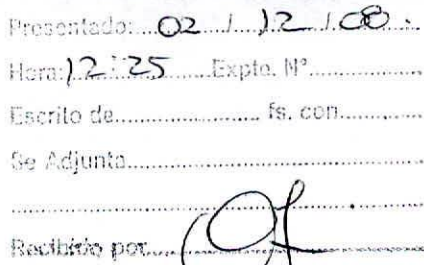 Presentado: 02 / 12 / 08.
Hora: 12:25 Expte. Nº
Escrito de fs. con
Se Adjunta
Recibido por